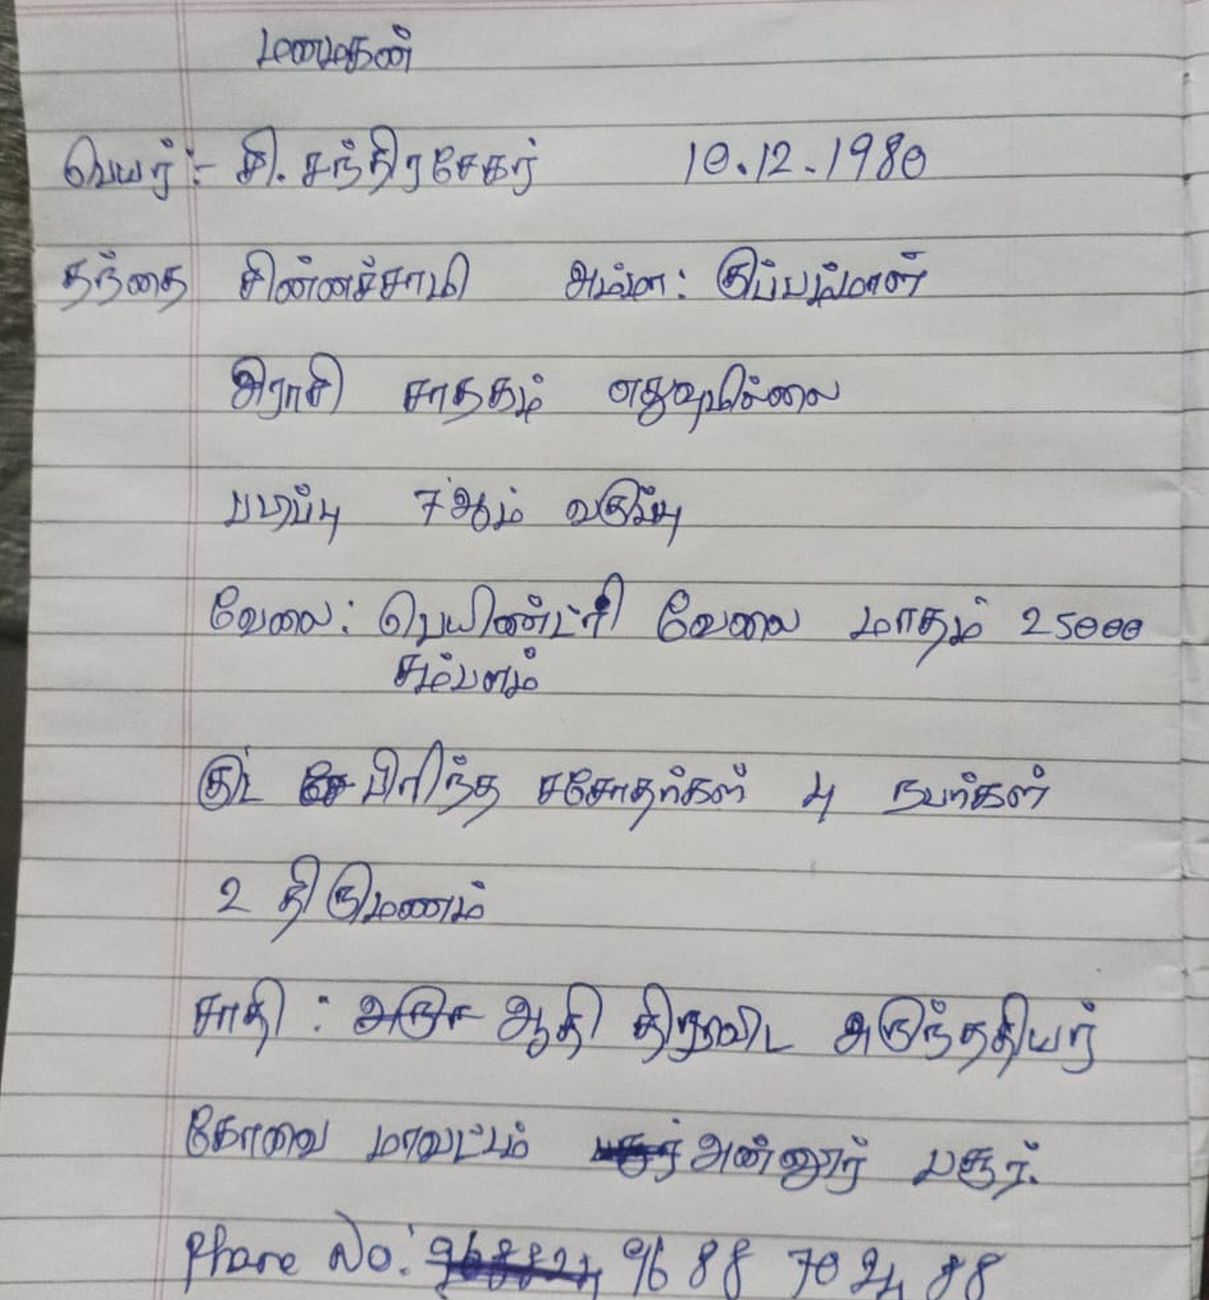 மணமகன்
பெயர் :- சி. சந்திரசேகர் 10.12.1980
தந்தை சின்னச்சாமி அம்மா : குப்பம்மாள்
இராசி சாதகம் எதுவுமில்லை
படிப்பு 7 ஆம் வகுப்பு
வேலை : பெயிண்டர் வேலை மாதம் 25000
சம்பளம்
பிரிந்த சகோதர்கள் 4 நபர்கள்
2 திருமணம்
சாதி : ஆதி திராவிட அருந்ததியர்
கோவை மாவட்டம் அன்னூர் பசூர்.
Phone No: 96 88 70 24 88